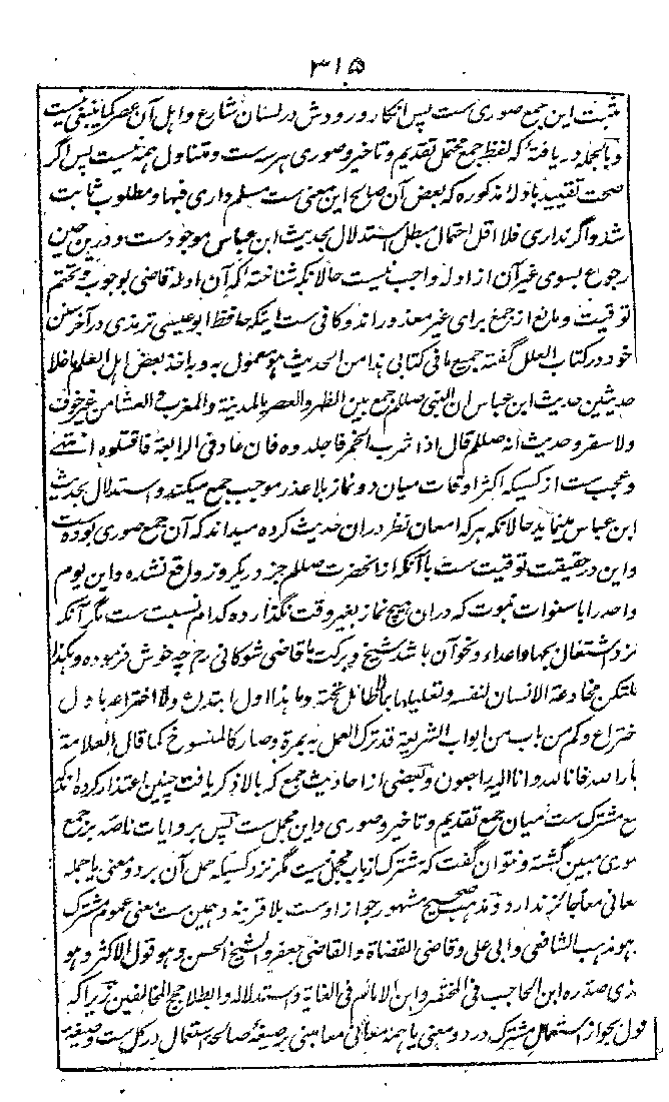 ۳۱۵
مثبت این جمع صوری ست پس انکار ورودش در لسان شارع و اہل آن عصر کما ینبغی نیست
و بالجملہ دریافتۂ کہ لفظ جمع محتمل تقدیم و تاخیر و صوری ہر سہ ست و متناول ہمہ نیست پس اگر
صحت تقیید بادلۂ مذکورہ کہ بعض آن صالح این معنی ست مسلم داری فبہا و مطلوب ثابت
شد و اگر نداری فلا اقل احتمال مبطل استدلال بحدیث ابن عباس موجود ست و درین حین
رجوع بسوی غیر آن از ادلہ واجب نیست حالانکہ شناختۂ کہ آن ادلہ قاضی بوجوب و تحتم
توقیت و مانع از جمع برای غیر معذور اند و کافی ست اینکہ حافظ ابو عیسی ترمذی در آخر سنن
خود در کتاب العلل گفتہ جمیع ما فی کتابی ہذا من الحدیث ہو معمول بہ و بہ اخذ بعض اہل العلم ما خلا
حدیثین حدیث ابن عباس ان النبی صللم جمع بین الظہر والعصر بالمدینۃ والمغرب والعشا من غیر خوف
ولا سفر و حدیث انہ صللم قال اذا شرب الخمر فاجلدوہ فان عاد فی الرابعۃ فاقتلوہ انتہے
و عجب ست از کسیکہ اکثر اوقات میان دو نماز بلا عذر موجب جمع میکند و استدلال بحدیث
ابن عباس مینماید حالانکہ ہر کہ امعان نظر دران حدیث کردہ میداند کہ آن جمع صوری بودہ ست
و این در حقیقت توقیت ست با آنکہ از آنحضرت صللم جز در یکروز واقع نشدہ و این یوم
واحد را با سنوات نبوت کہ دران ہیچ نماز بغیر وقت نگذاردہ کدام نسبت ست مگر آنکہ
نزد اشتغال بجہاد اعداء و نحو آن باشد شیخ و برکت ما قاضی شوکانی رح چہ خوش فرمودہ و ہکذا
فلتکن مخادعۃ الانسان لنفسہ و تعلیلہا بما لا طائل تحتہ و ما ہذا اول ابتداع ولا اختراعہ باول
اختراع و کم من باب من ابواب الشریعۃ قد ترک العمل بہ بمرۃ و صار کالمنسوخ کما قال العلامۃ
جار اللہ فانا للہ و انا الیہ راجعون و بعضی از احادیث جمع کہ بالا ذکر یافت چنین اعتذار کردہ اند کہ
جمع مشترک ست میان جمع تقدیم و تاخیر و صوری و این مجمل ست پس بروایات ناصہ بر جمع
صوری مبین گشتہ و نتوان گفت کہ مشترک از باب مجمل نیست مگر نزد کسیکہ حمل آن بر دو معنی یا جملہ
معانی معاً جائز ندارد و مذہب صحیح مشہور جواز اوست بلا قرینہ و ہمین ست معنی عموم مشترک
و ہو مذہب الشافعی و ابی علی و قاضی القضاۃ والقاضی جعفر والشیخ الحسن و ہو قول الاکثر و ہو
الذی صدرہ ابن الحاجب فی المختصر و ابن الامام فی الغایۃ و استدلا لہ و ابطلا حجج المخالفین زیراکہ
قول بجواز استعمال مشترک در دو معنی یا ہمہ معانی معا مبنی بر صیغۂ صالح استعمال در کل ست و صیغۂ